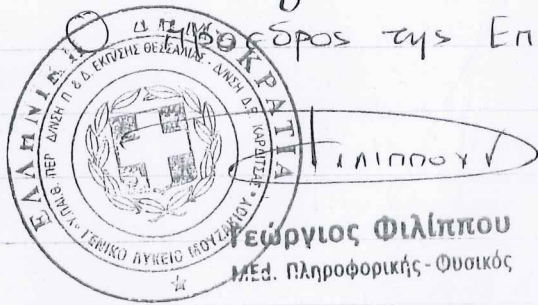 Ο Πρόεδρος της Επ
ΕΛΛΗΝΙΚΗ ΔΗΜΟΚΡΑΤΙΑ
ΠΕΡ. Δ/ΝΣΗ Π. & Δ. ΕΚΠ/ΣΗΣ ΘΕΣΣΑΛΙΑΣ - Δ/ΝΣΗ Δ.Ε. ΚΑΡΔΙΤΣΑΣ
ΓΕΝΙΚΟ ΛΥΚΕΙΟ ΜΟΥΖΑΚΙΟΥ
Γεώργιος Φιλίππου
M.Ed. Πληροφορικής - Φυσικός